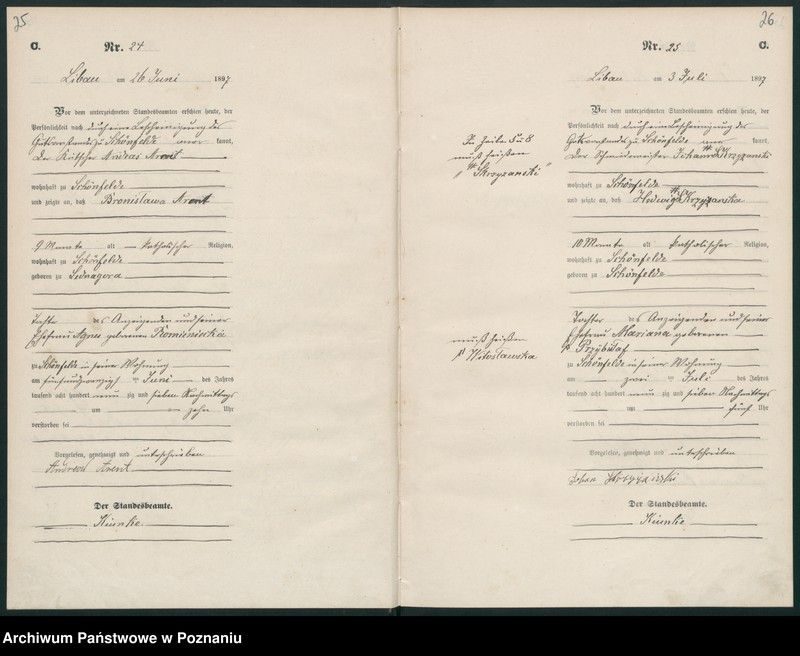 25
C. Nr. 24
Libau am 26 Juni 1897
Vor dem unterzeichneten Standesbeamten erschien heute, der
Persönlichkeit nach durch eine Bescheinigung des
Gutsvorstands zu Schönfelde kannt,
Der Kutscher Andreas Arent
wohnhaft zu Schönfelde
und zeigte an, daß Bronislawa Arent
9 Monate alt katholischer Religion,
wohnhaft zu Schönfelde
geboren zu Lednagora
Tochter des Anzeigenden und seiner
Ehefrau Agnes geborenen
zu Schönfelde in seiner Wohnung
am fünfundzwanzig ten Juni des Jahres
tausend acht hundert neun zig und sieben Nachmittags
um zehn Uhr
verstorben sei
Vorgelesen, genehmigt und unterschrieben
Andreas Arent
Der Standesbeamte.
26
Nr. 25 C.
Libau am 3 Juli 1897
Vor dem unterzeichneten Standesbeamten erschien heute, der
Persönlichkeit nach durch eine Bescheinigung des
Gutsvorstands zu Schönfelde kannt,
Der Schmiedemeister Johann Skrzypanski
wohnhaft zu Schönfelde
und zeigte an, daß Hedwig
10 Monate alt katholischer Religion,
wohnhaft zu Schönfelde
geboren zu Schönfelde
Tochter des Anzeigenden und seiner
Ehefrau Mariana geborenen
zu Schönfelde in seiner Wohnung
am zwei ten Juli des Jahres
tausend acht hundert neun zig und sieben Nachmittags
um fünf Uhr
verstorben sei
Vorgelesen, genehmigt und unterschrieben
Der Standesbeamte.
In Zeile 5 u 8
muß heißen
muß heißen
Archiwum Państwowe w Poznaniu